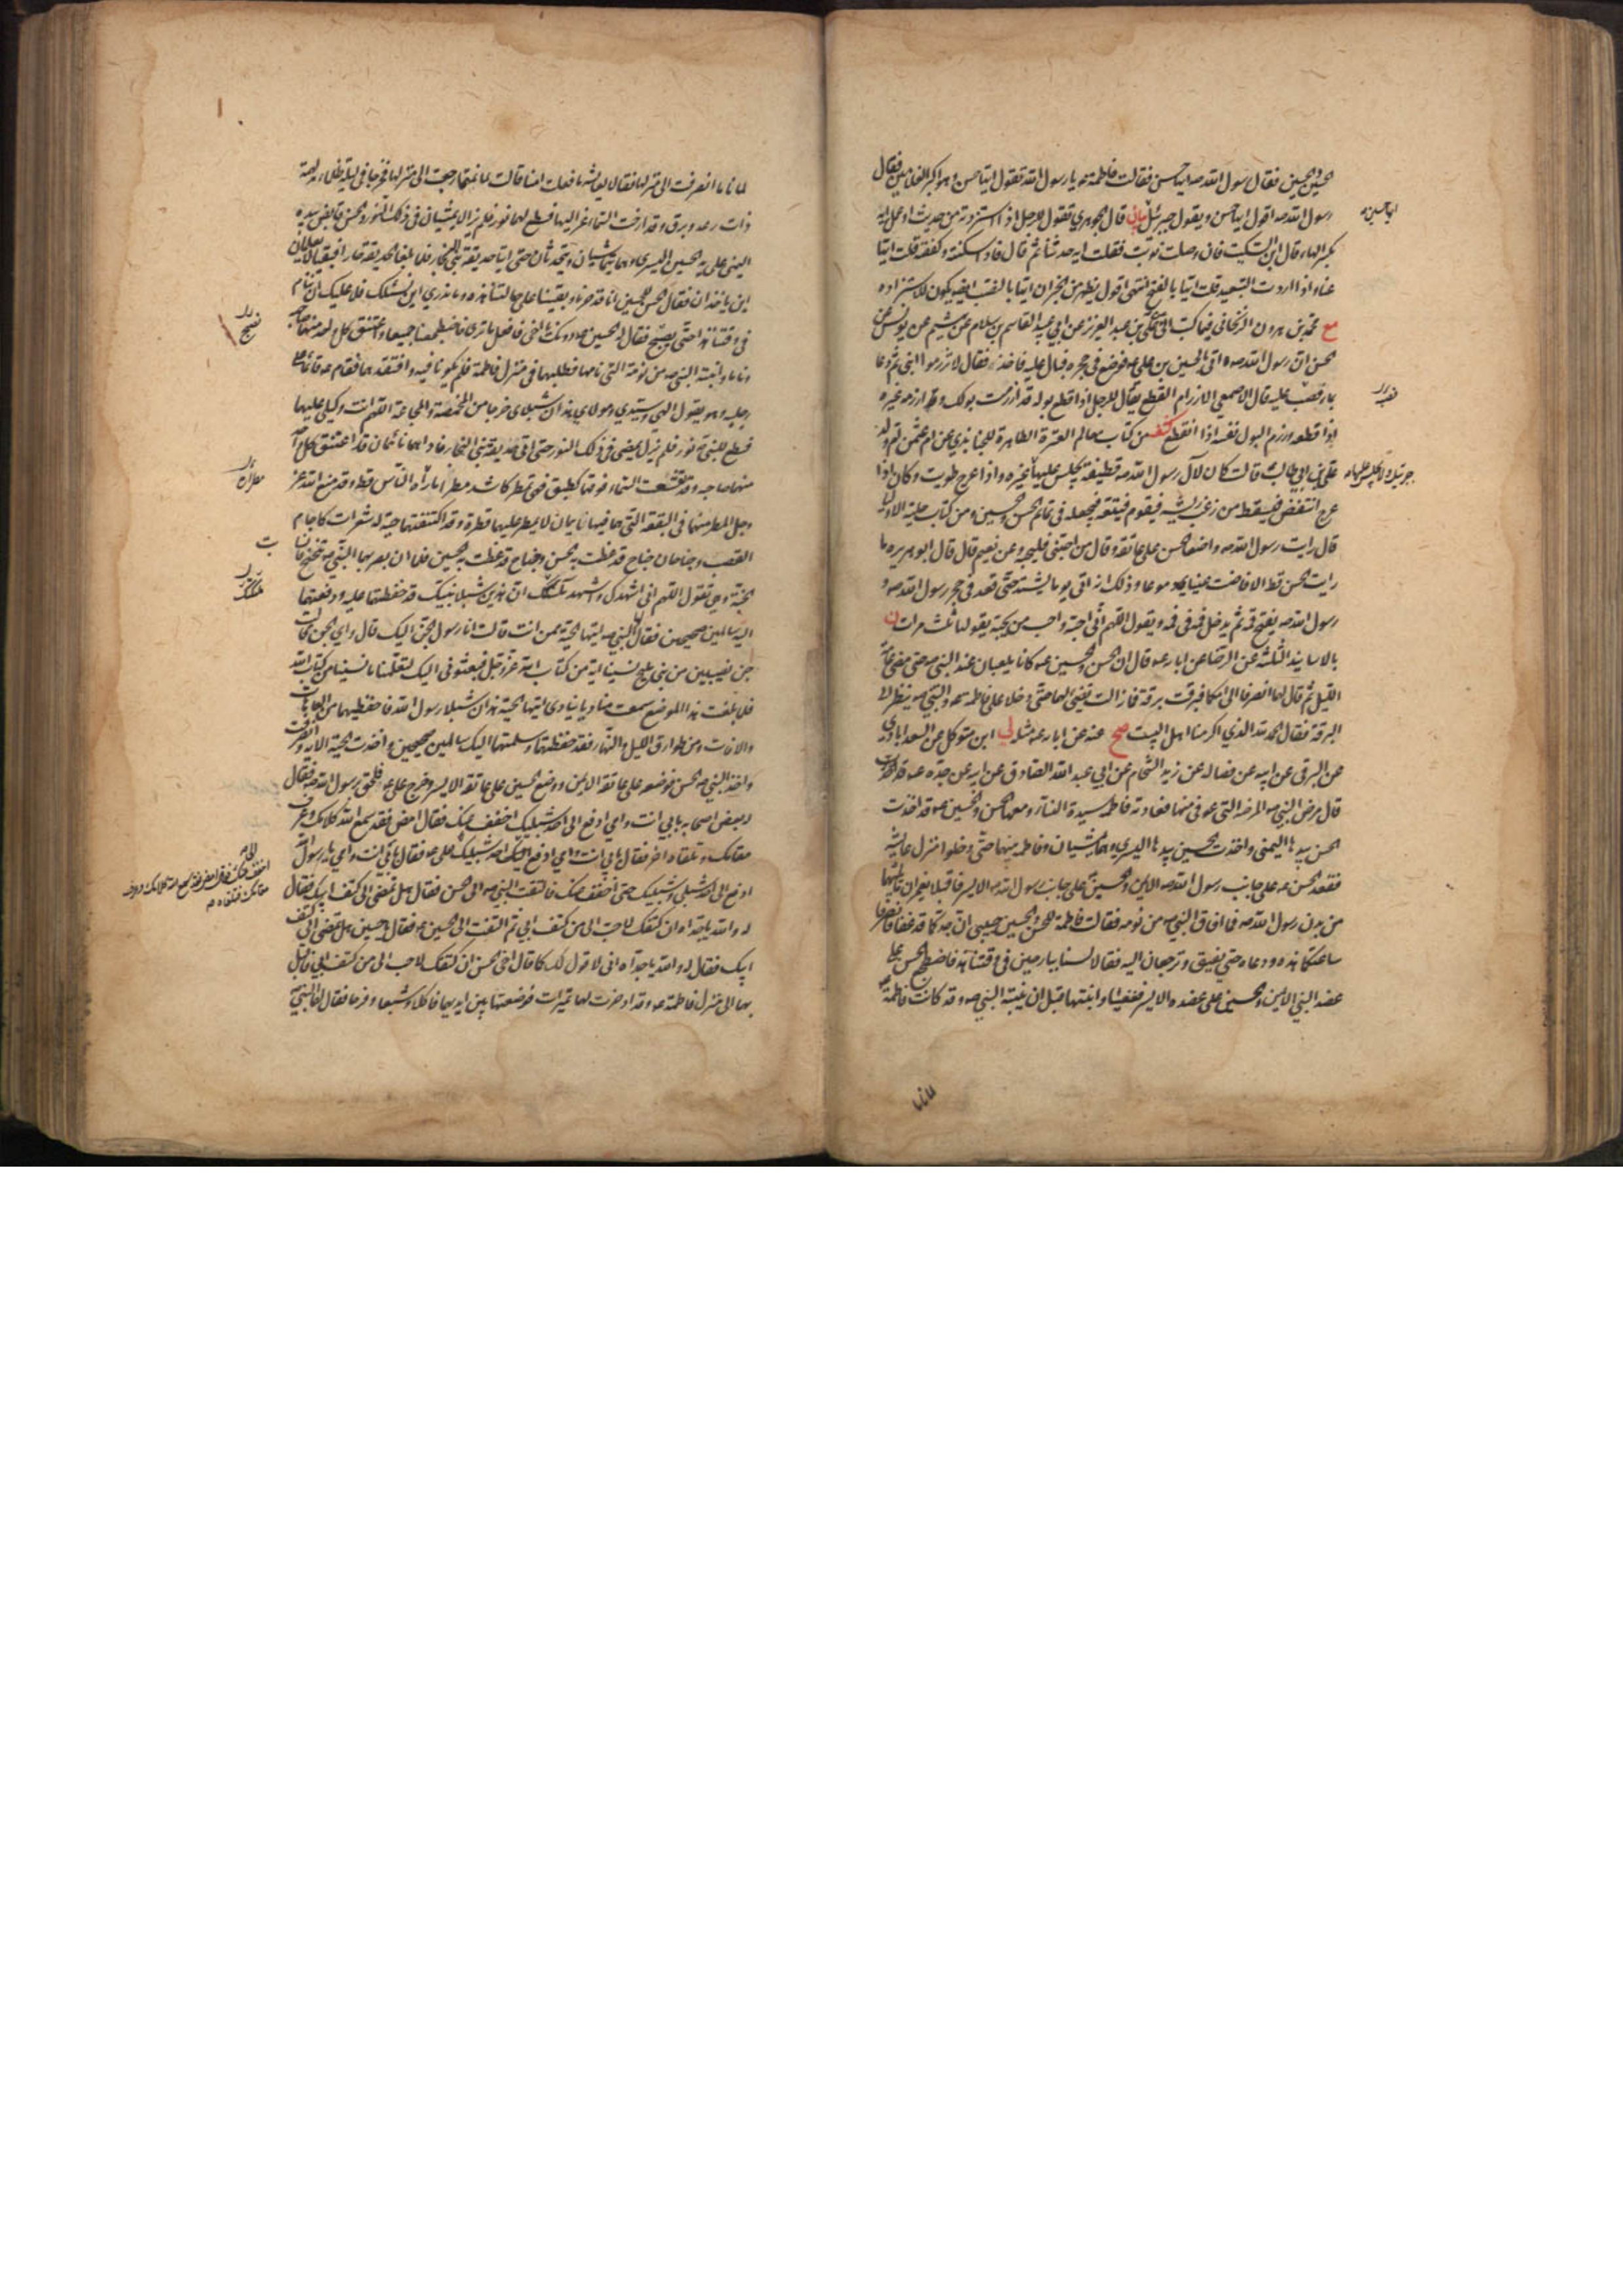 حسن وحسين فقال رسول الله صه ايها حسن فقالت فاطمة ع يا رسول الله تقول ايها حسن وهو اكبر الغلامين فقال
رسول الله صه اقول ايها حسن ويقول جبرئيل بيان قال الجوهري تقول للرجل اذا استزدته من حديث او عمل ايه
بكسر الهاء قال ابن السكيت فان وصلت نونت فقلت ايه حدثنا ثم قال فاذا سكنته وكففته قلت ايها
عنا واذا اردت التبعيد قلت ايها بالفتح انتهى اقول يظهر من الخبر ان ايها بالنصب ايضا يكون للاستزاده
مع محمد بن هرون الزنجاني فيما كتب الى عن علي بن عبد العزيز عن ابي عبيد القاسم بن سلام عن هشيم عن يونس عن
حسن ان رسول الله صه اتى بالحسين بن علي ع فوضع في حجره فبال عليه فاخذ فقال لا تزرموا ابني ثم دعا
بماء فصب عليه قال الاصمعي الازرام القطع يقال للرجل اذا قطع بوله قد ازرمت بولك وقد ازرمه غيره
اذا قطعه وزرم البول نفسه اذا انقطع كشف من كتاب معالم العترة الطاهرة للجنابذي عن ام عثمن ام ولد
علي بن ابي طالب قالت كان لآل رسول الله صه قطيفة يجلس عليها غيره واذا عرج طويت وكان اذا
عرج انتفض فيسقط من زغب ريشه فيقوم فيتبعه فيجعله في تمائم الحسن والحسين ومن كتاب حلية الاولياء
قال رايت رسول الله صه واضعا الحسن على عاتقه وقال من احبني فليحبه وعن نعيم قال قال ابو هريره ما
رايت الحسن قط الا فاضت عيناي دموعا وذلك انه اتى يوما يشتد حتى قعد في حجر رسول الله صه و
رسول الله صه يفتح فمه ثم يدخل فمه في فمه ويقول اللهم اني احبه واحب من يحبه يقولها ثلث مرات ن
بالاسانيد الثلثة عن الرضا عن ابائه ع قال ان الحسن والحسين ع كانا يلعبان عند النبي صه حتى مضى عامة
الليل ثم قال لهما انصرفا الى امكما فبرقت برقة فما زالت تضيء لهما حتى دخلا على فاطمه ع والنبي صه ينظر الى
البرقة فقال الحمد لله الذي اكرمنا اهل البيت صح عنه عن ابائه ع مثله لي ابن متوكل عن السعدابادي
عن البرقي عن ابيه عن فضاله عن زيد الشحام عن ابي عبد الله الصادق عن ابيه عن جده ع
قال مرض النبي صه المرضه التي عوفي منها فعادته فاطمه سيدة النساء ومعها الحسن والحسين ع قد اخذت
الحسن بيدها اليمنى واخذت الحسين بيدها اليسرى وهما يمشيان وفاطمه بينهما حتى دخلوا منزل عايشه
فقعد الحسن ع على جانب رسول الله صه الايمن والحسين على جانب رسول الله صه الايسر فاقبلا يغمزان ما يليهما
من بدن رسول الله صه فما افاق النبي صه من نومه فقالت فاطمة للحسن والحسين حبيبي ان جدكما قد غفا فانصرفا
ساعتكما هذه ودعاه حتى يفيق وترجعان اليه فقالا لسنا ببارحين في وقتنا هذا فاضطجع الحسن على
عضد النبي الايمن والحسين على عضده الايسر فغفيا وانتبها قبل ان ينتبه النبي صه وقد كانت فاطمة ع
لما ناما انصرفت الى منزلها فقالا لعايشه ما فعلت امنا قالت لما نمتما رجعت الى منزلها فخرجا في ليلة ظلماء مدلهمة
ذات رعد وبرق وقد ارخت السماء عزاليها فسطع لهما نور فلم يزالا يمشيان في ذلك النور والحسن قابض بيده
اليمنى على يد الحسين اليسرى وهما يتماشيان ويتحدثان حتى اتيا حديقة بني النجار فلما بلغا الحديقة حارا فبقيا لا يعلمان
اين ياخذان فقال الحسن للحسين انا قد حرنا وبقينا على حالتنا هذه وما ندري اين نسلك فلا عليك ان ننام
في وقتنا هذا حتى نصبح فقال له الحسين ع دونك يا اخي فافعل ما ترى فاضطجعا جميعا واعتنق كل واحد منهما صاحبه
وناما وانتبه النبي صه من نومته التي نامها فطلبهما في منزل فاطمة فلم يكونا فيه وافتقدهما فقام ع قائما على
رجليه وهو يقول الهي وسيدي ومولاي هذان شبلاي خرجا من المخمصة والمجاعة اللهم انت وكيلي عليهما
فسطع للنبي نور فلم يزل يمضي في ذلك النور حتى اتى حديقة بني النجار فاذا هما نائمان قد اعتنق كل واحد
منهما صاحبه وقد تقشعت السماء فوقهما كطبق فهي تمطر كاشد مطر ما رآه الناس قط وقد منع الله عز
وجل المطر منهما في البقعة التي هما فيها نائمان لا يمطر عليهما قطرة وقد اكتنفتهما حية لها شعرات كاجام
القصب وجناحان جناح قد غطت به الحسن وجناح قد غطت به الحسين فلما ان بصر بهما النبي صه تنحنح فانسابت
الحية وهي تقول اللهم اني اشهدك واشهد ملائكتك ان هذين شبلا نبيك قد حفظتهما عليه ودفعتهما
اليه سالمين صحيحين فقال لها النبي صه ايتها الحية ممن انت قالت انا رسول الجن اليك قال واي الجن قالت
جن نصيبين من بني مليح نسينا اية من كتاب الله عز وجل فبعثوني اليك لتعلمنا ما نسينا من كتاب الله
فلما بلغت هذا الموضع سمعت مناديا ينادي ايتها الحية هذان شبلا رسول الله فاحفظيهما من العاهات
والافات ومن طوارق الليل والنهار فقد حفظتهما وسلمتهما اليك سالمين صحيحين واخذت الحية الاية وانصرفت
واخذ النبي صه الحسن فوضعه على عاتقه الايمن ووضع الحسين على عاتقه الايسر وخرج علي ع فلحق برسول الله صه فقال
له بعض اصحابه بابي انت وامي ادفع الي احد شبليك اخفف عنك فقال امض فقد سمع الله كلامك وعرف
مقامك وتلقاه اخر فقال بابي انت وامي ادفع الي احد شبليك
علي ع فقال بابي انت وامي يا رسول الله
ادفع الي احد شبلي وشبليك حتى اخفف عنك فالتفت النبي صه الى الحسن فقال هل تمضي الى كتف ابيك فقال
له والله يا جداه ان كتفك لاحب الي من كتف ابي ثم التفت الى الحسين ع فقال يا حسين هل تمضي الى كتف
ابيك فقال له والله يا جداه اني لاقول لك كما قال اخي الحسن ان كتفك لاحب الي من كتف ابي فاقبل
بهما الى منزل فاطمة ع وقد ادخرت لهما تميرات فوضعتها بين ايديهما فاكلا وشبعا وفرحا فقال لهما النبي صه